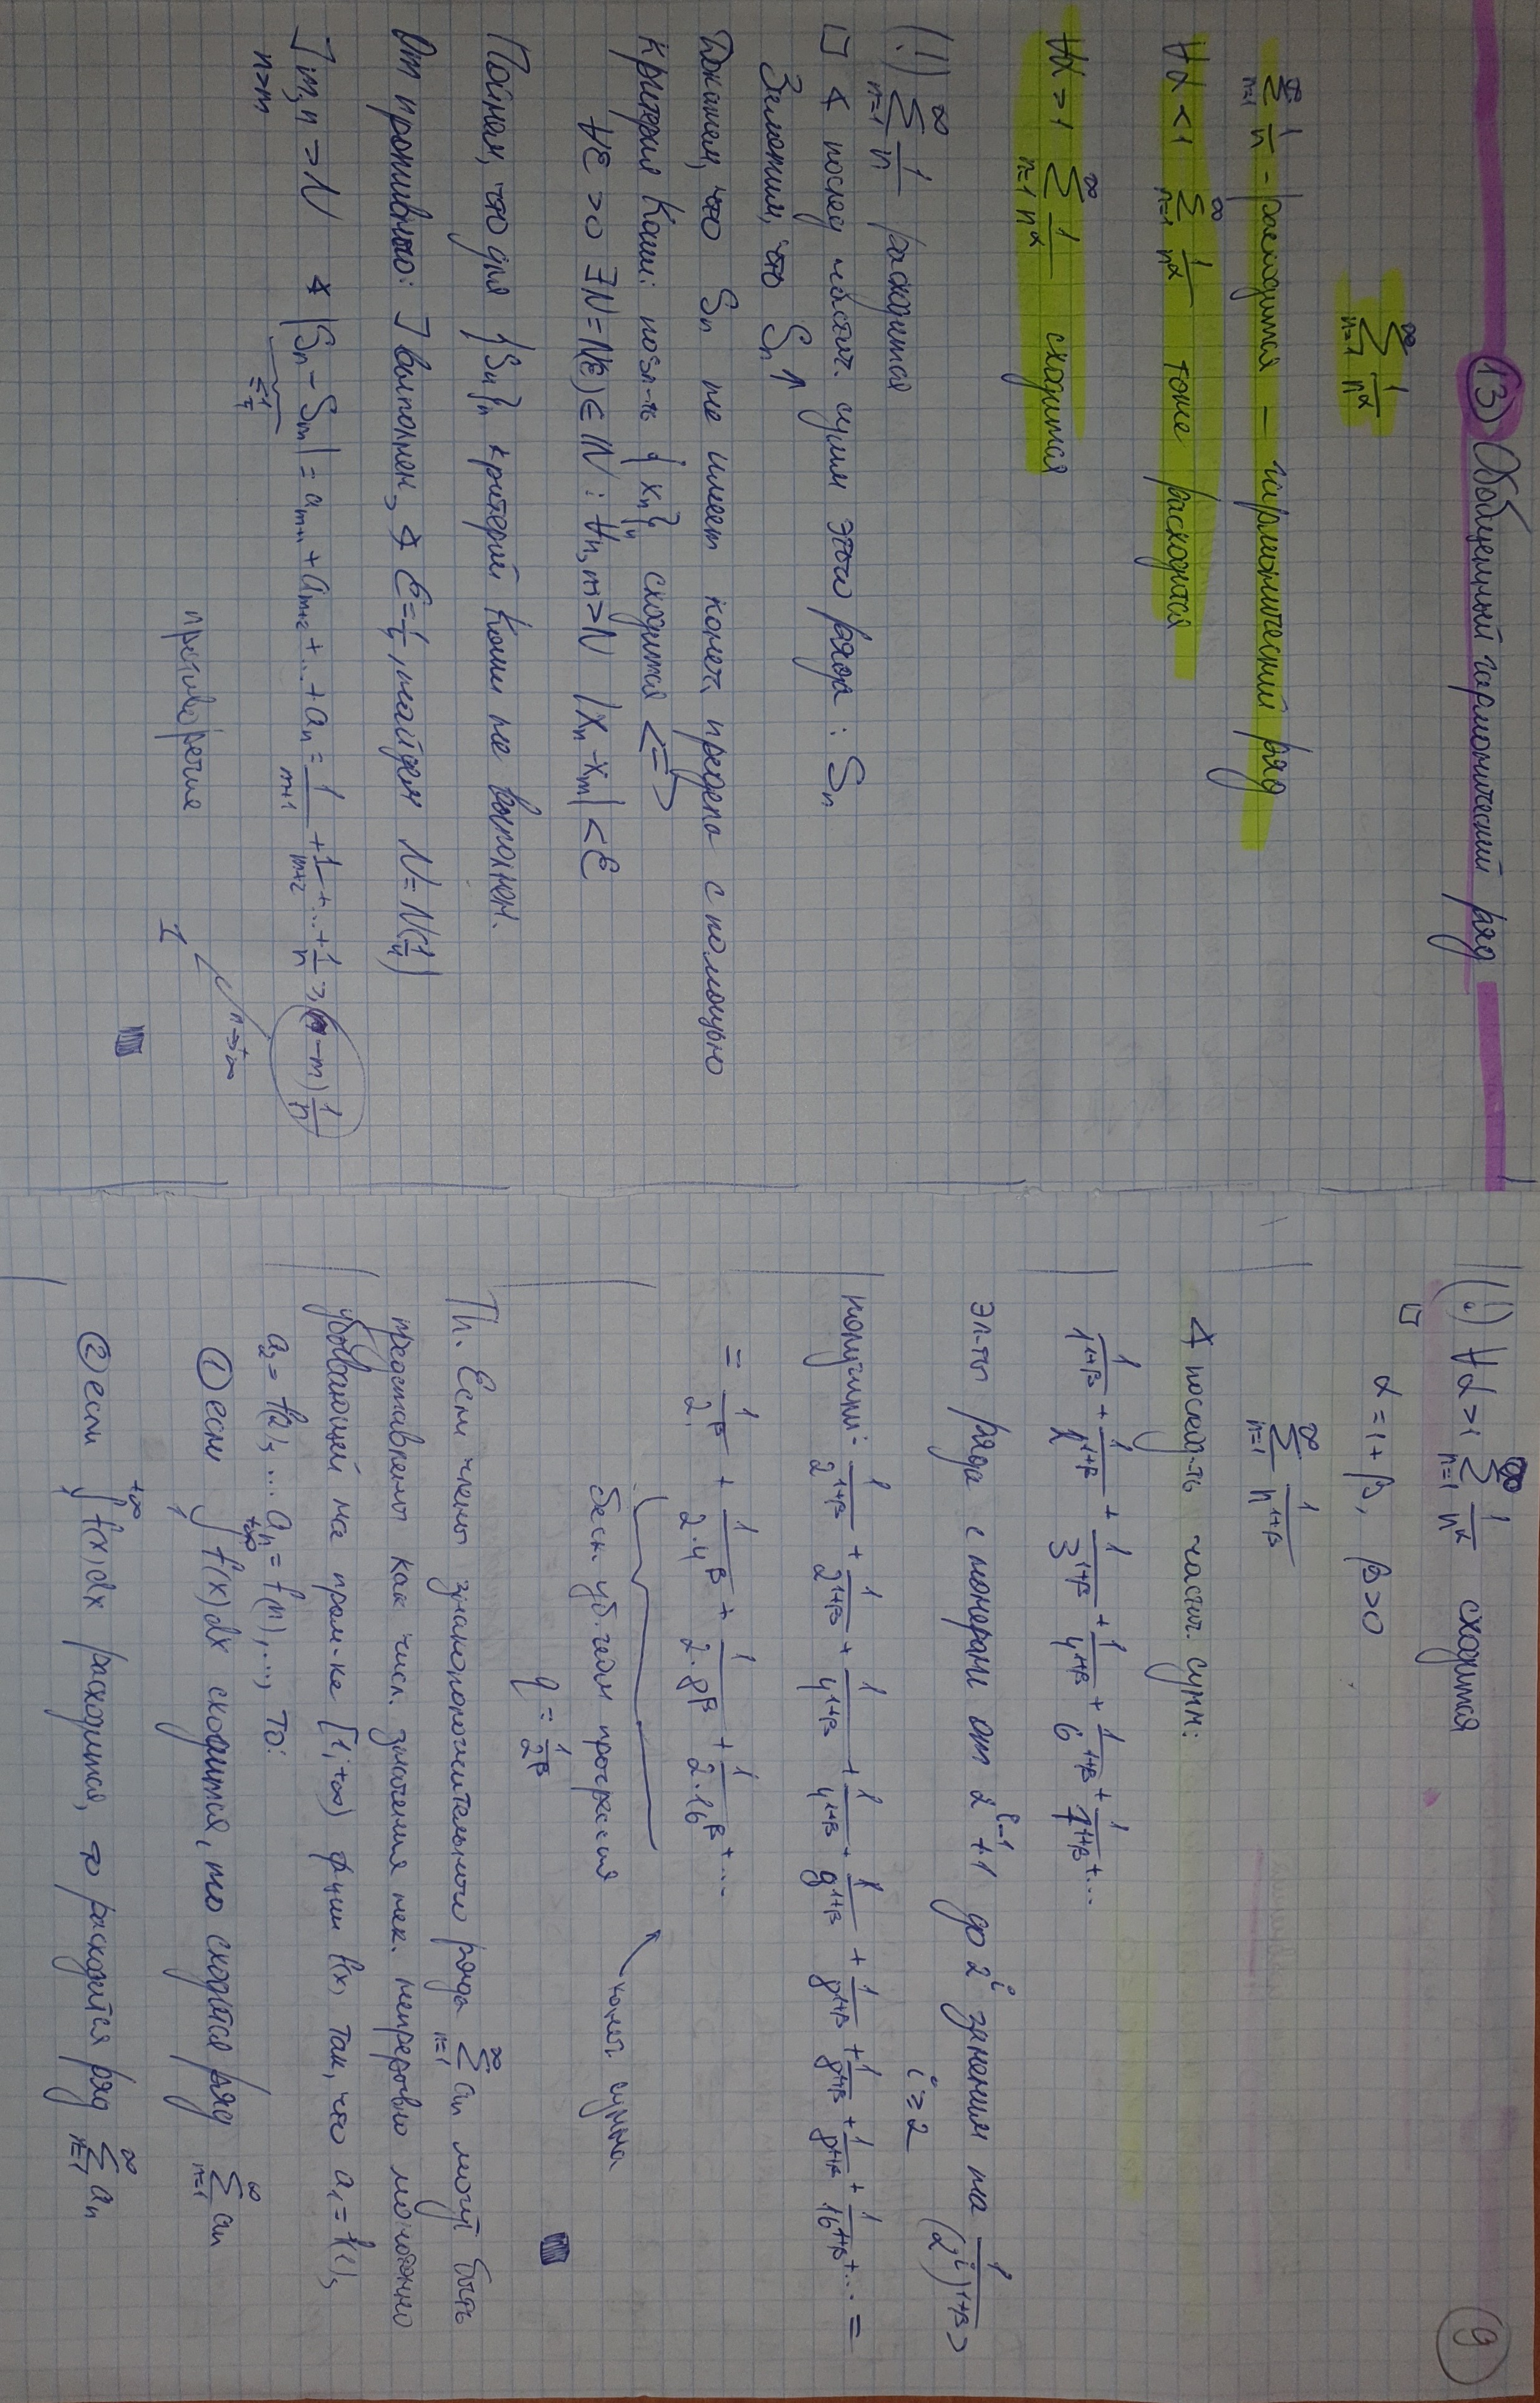 13) Обобщенный гармонический ряд
∞
∑ 1/n^α
n=1
∞
∑ 1/n - расходится – гармонический ряд
n=1
∀α<1 ∑_{n=1}^∞ 1/n^α тоже расходится
∀α>1 ∑_{n=1}^∞ 1/n^α сходится
(!) ∑_{n=1}^∞ 1/n расходится
□ ∢ послед частич. сумм этого ряда: Sn
Заметим, что Sn↑
Докажем, что Sn не имеет конеч. предела с помощью
критерия Коши: посл-ть {xn}n сходится <=>
∀ε>0 ∃N=N(ε)∈ℕ: ∀n,m>N |xn-xm|<ε
Поймем, что для {Sn}n критерий Коши не выполнен.
От противного: ] выполнен, ∢ ε=1/4, найдем N=N(1/4)
] m,n>N ∢ |Sn-Sm| = a_{m+1}+a_{m+2}+...+a_n = 1/(m+1) + 1/(m+2) +...+ 1/n ≥ (n-m) 1/n
n>m
≤1/4
n→+∞
1
противоречие
9
(!) ∀α>1 ∑_{n=1}^∞ 1/n^α сходится
□
α=1+β, β>0
∑_{n=1}^∞ 1/n^{1+β}
∢ послед-ть частич. сумм:
1/1^{1+β} + 1/2^{1+β} + 1/3^{1+β} + 1/4^{1+β} + 1/6^{1+β} + 1/7^{1+β} + ...
эл-ты ряда с номерами от 2^{i-1}+1 до 2^i заменим на 1/(2^i)^{1+β},
i≥2
получим: 1/2^{1+β} + 1/2^{1+β} + 1/4^{1+β} + 1/4^{1+β} + 1/8^{1+β} + 1/8^{1+β} + 1/8^{1+β} + 1/8^{1+β} + 1/16^{1+β} + ... =
= 1/2^β + 1/2·4^β + 1/2·8^β + 1/2·16^β + ...
беск. уб. геом прогрессия
конеч. сумма
q = 1/2^β
Th. Если члены знакоположительного ряда ∑_{n=1}^∞ an могут быть
представлены как числ. значения нек. непрерывно монотонно
убывающей на пром-ке [1;+∞) ф-ции f(x) так, что a₁=f(1),
a₂=f(2), ... an=f(n),..., то:
① если ∫_1^{+∞} f(x)dx сходится, то сходится ряд ∑_{n=1}^∞ an
② если ∫_1^{+∞} f(x)dx расходится, то расходится ряд ∑_{n=1}^∞ an